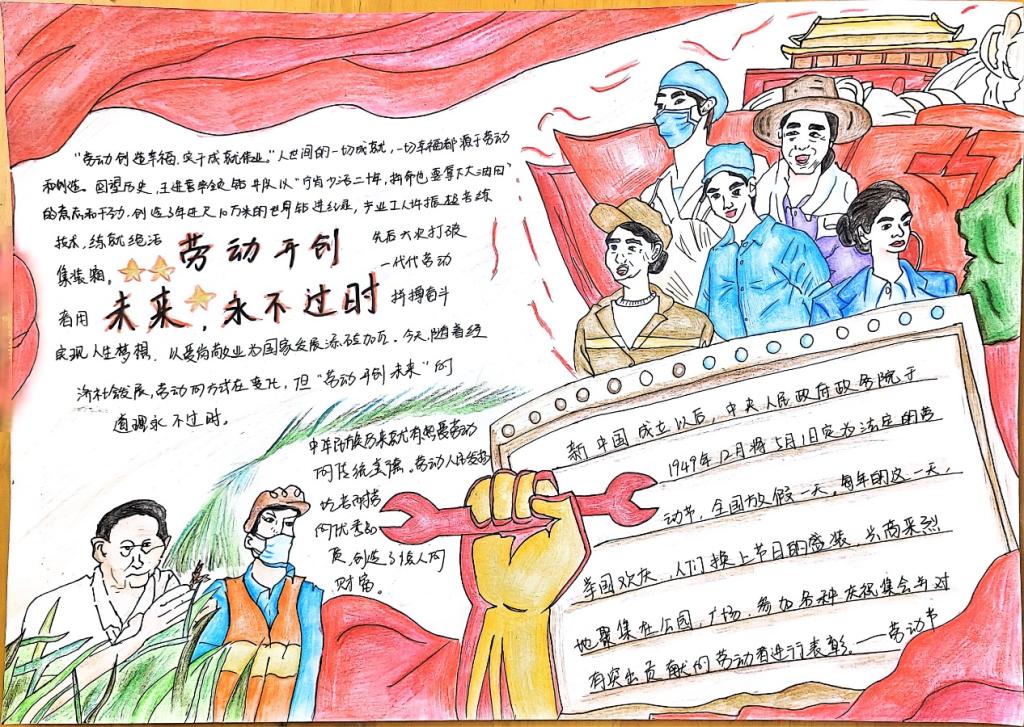 "劳动创造幸福,实干成就伟业。"人世间的一切成就,一切幸福都源于劳动
和创造。回望历史,王进喜率领钻井队以"宁肯少活二十年,拼命也要拿下大油田"
的意志和干劲,创造了年进尺10万米的世界钻进纪录,产业工人许振超苦练
技术,练就绝活
先后六次打破
集装箱。
一代代劳动
者用
拼搏奋斗
劳动开创
未来,永不过时
实现人生梦想,以爱岗敬业为国家发展添砖加瓦。今天,随着经
济社会发展,劳动的方式在变化,但"劳动开创未来"的
道理永不过时。
中华民族历来就有勤劳
的传统美德。劳动人民
的优秀品
质,创造了惊人的
财富。
新中国成立以后,中央人民政府政务院于
1949年12月将5月1日定为法定的劳
动节,全国放假一天。每年的这一天,
举国欢庆,人们换上节日的盛装,兴高采烈
地聚集在公园,广场,参加各种庆祝集会与对
有突出贡献的劳动者进行表彰。——劳动节